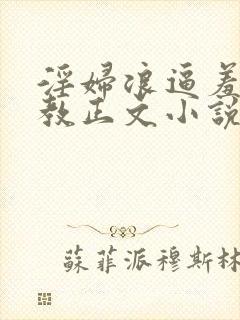 淫婦浪逼羞
教正文小說
蘇菲派穆斯林